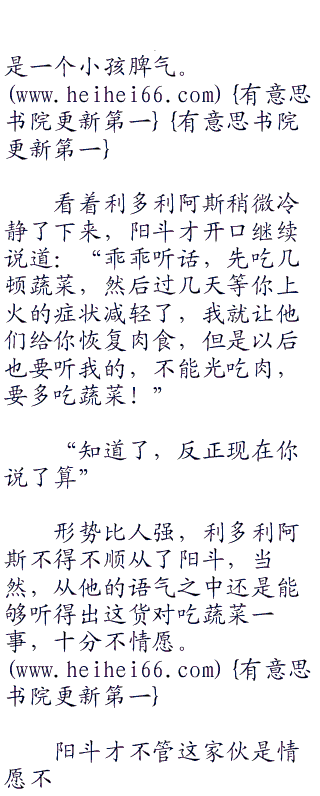 是一个小孩脾气。
(www.heihei66.com){有意思
书院更新第一}{有意思书院
更新第一}
看着利多利阿斯稍微冷
静了下来，阳斗才开口继续
说道：“乖乖听话，先吃几
顿蔬菜，然后过几天等你上
火的症状减轻了，我就让他
们给你恢复肉食，但是以后
也要听我的，不能光吃肉，
要多吃蔬菜！”
“知道了，反正现在你
说了算”
形势比人强，利多利阿
斯不得不顺从了阳斗，当
然，从他的语气之中还是能
够听得出这货对吃蔬菜一
事，十分不情愿。
(www.heihei66.com){有意思
书院更新第一}
阳斗才不管这家伙是情
愿不